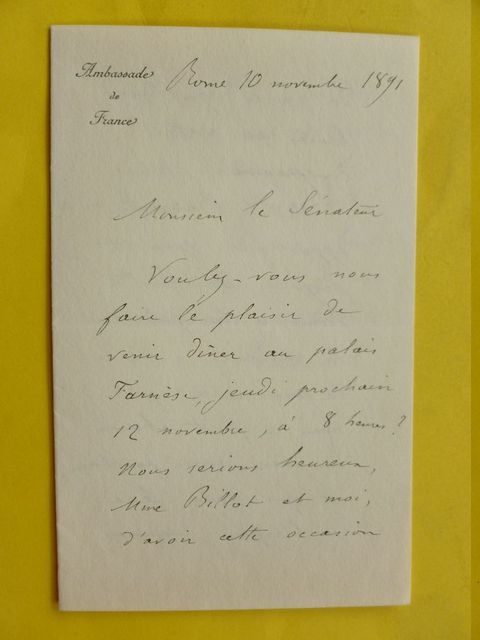 Ambassade
de
France
Rome 10 novembre 1891
Monsieur le Sénateur
Voulez-vous nous
faire le plaisir de
venir dîner au palais
Farnèse, jeudi prochain
12 novembre, à 8 heures?
Nous serions heureux,
Mme Billot et moi,
d'avoir cette occasion